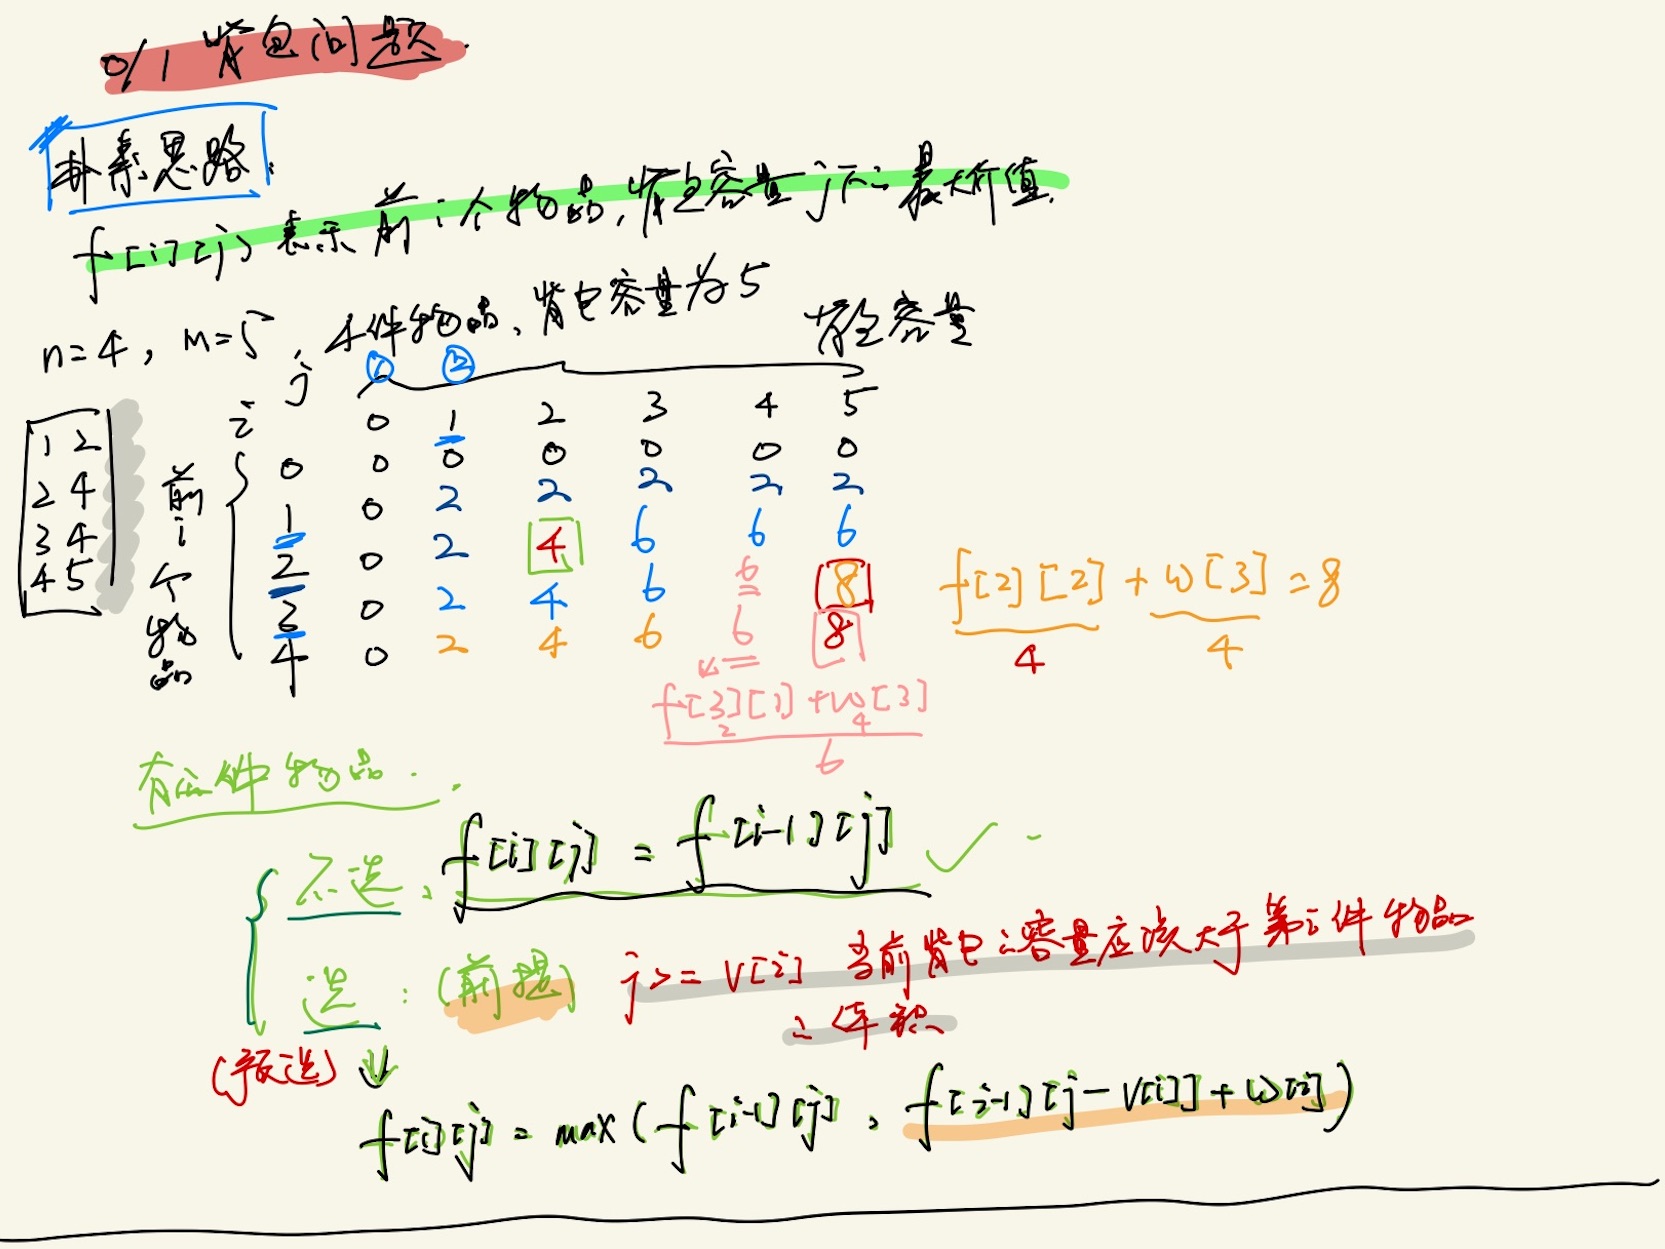 0/1 背包问题
朴素思路:
f[i][j] 表示前i个物品,背包容量j下的最大价值.
n=4, m=5, 4件物品、背包容量为5
背包容量
① ②
j
i 0 1 2 3 4 5
0 0 0 0 0 0 0
1 0 2 2 2 2 2
2 0 2 4 6 6 6
3 0 2 4 6 6 8
4 0 2 4 6 6 8
1 2
2 4
3 4
4 5
前
i
个
物
品
f[2][2] + w[3] = 8
4 4
f[3][1] + w[3]
2 4
6
有i件物品.
不选: f[i][j] = f[i-1][j] ✓
选: (前提) j>= v[i] 当前背包的容量应该大于第i件物品
的体积
(预选)
f[i][j] = max(f[i-1][j], f[i-1][j-v[i]]+w[i])